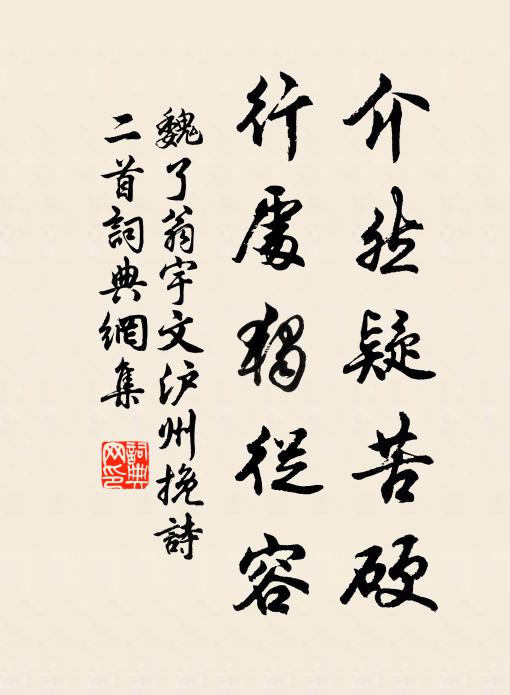 介然疑苦硬
行處獨從容
魏了翁宇文泸州挽詩
二首詞典網集
詞典網印